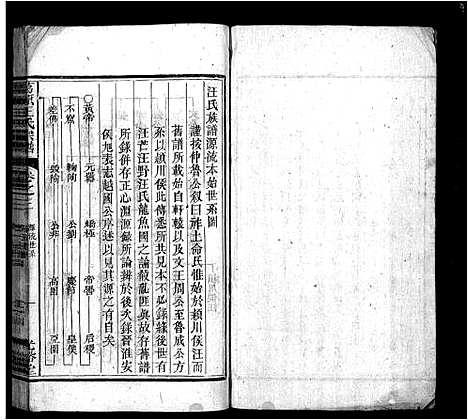 汪氏族譜源流本始世系圖
謹按仲魯公叙曰胙土侖氏惟始於潁川汪而
舊譜所載始自軒轅以及文王周公至魯成公方
系以潁川侯此傳悉所共見本不必錄緣後世有
汪芒汪野汪氏龍魚國之論殽亂匪眞故存舊譜
所錄併存正心淵源錄所論辨於後次錄晉淮安
侯旭表志越國公序述以見其源之有自矣
黃帝 元囂 蟜極 帝嚳 后稷
不窋 鞠陶 公劉 慶節 皇僕
差佛 毀揄 公非 高圉 亞圉